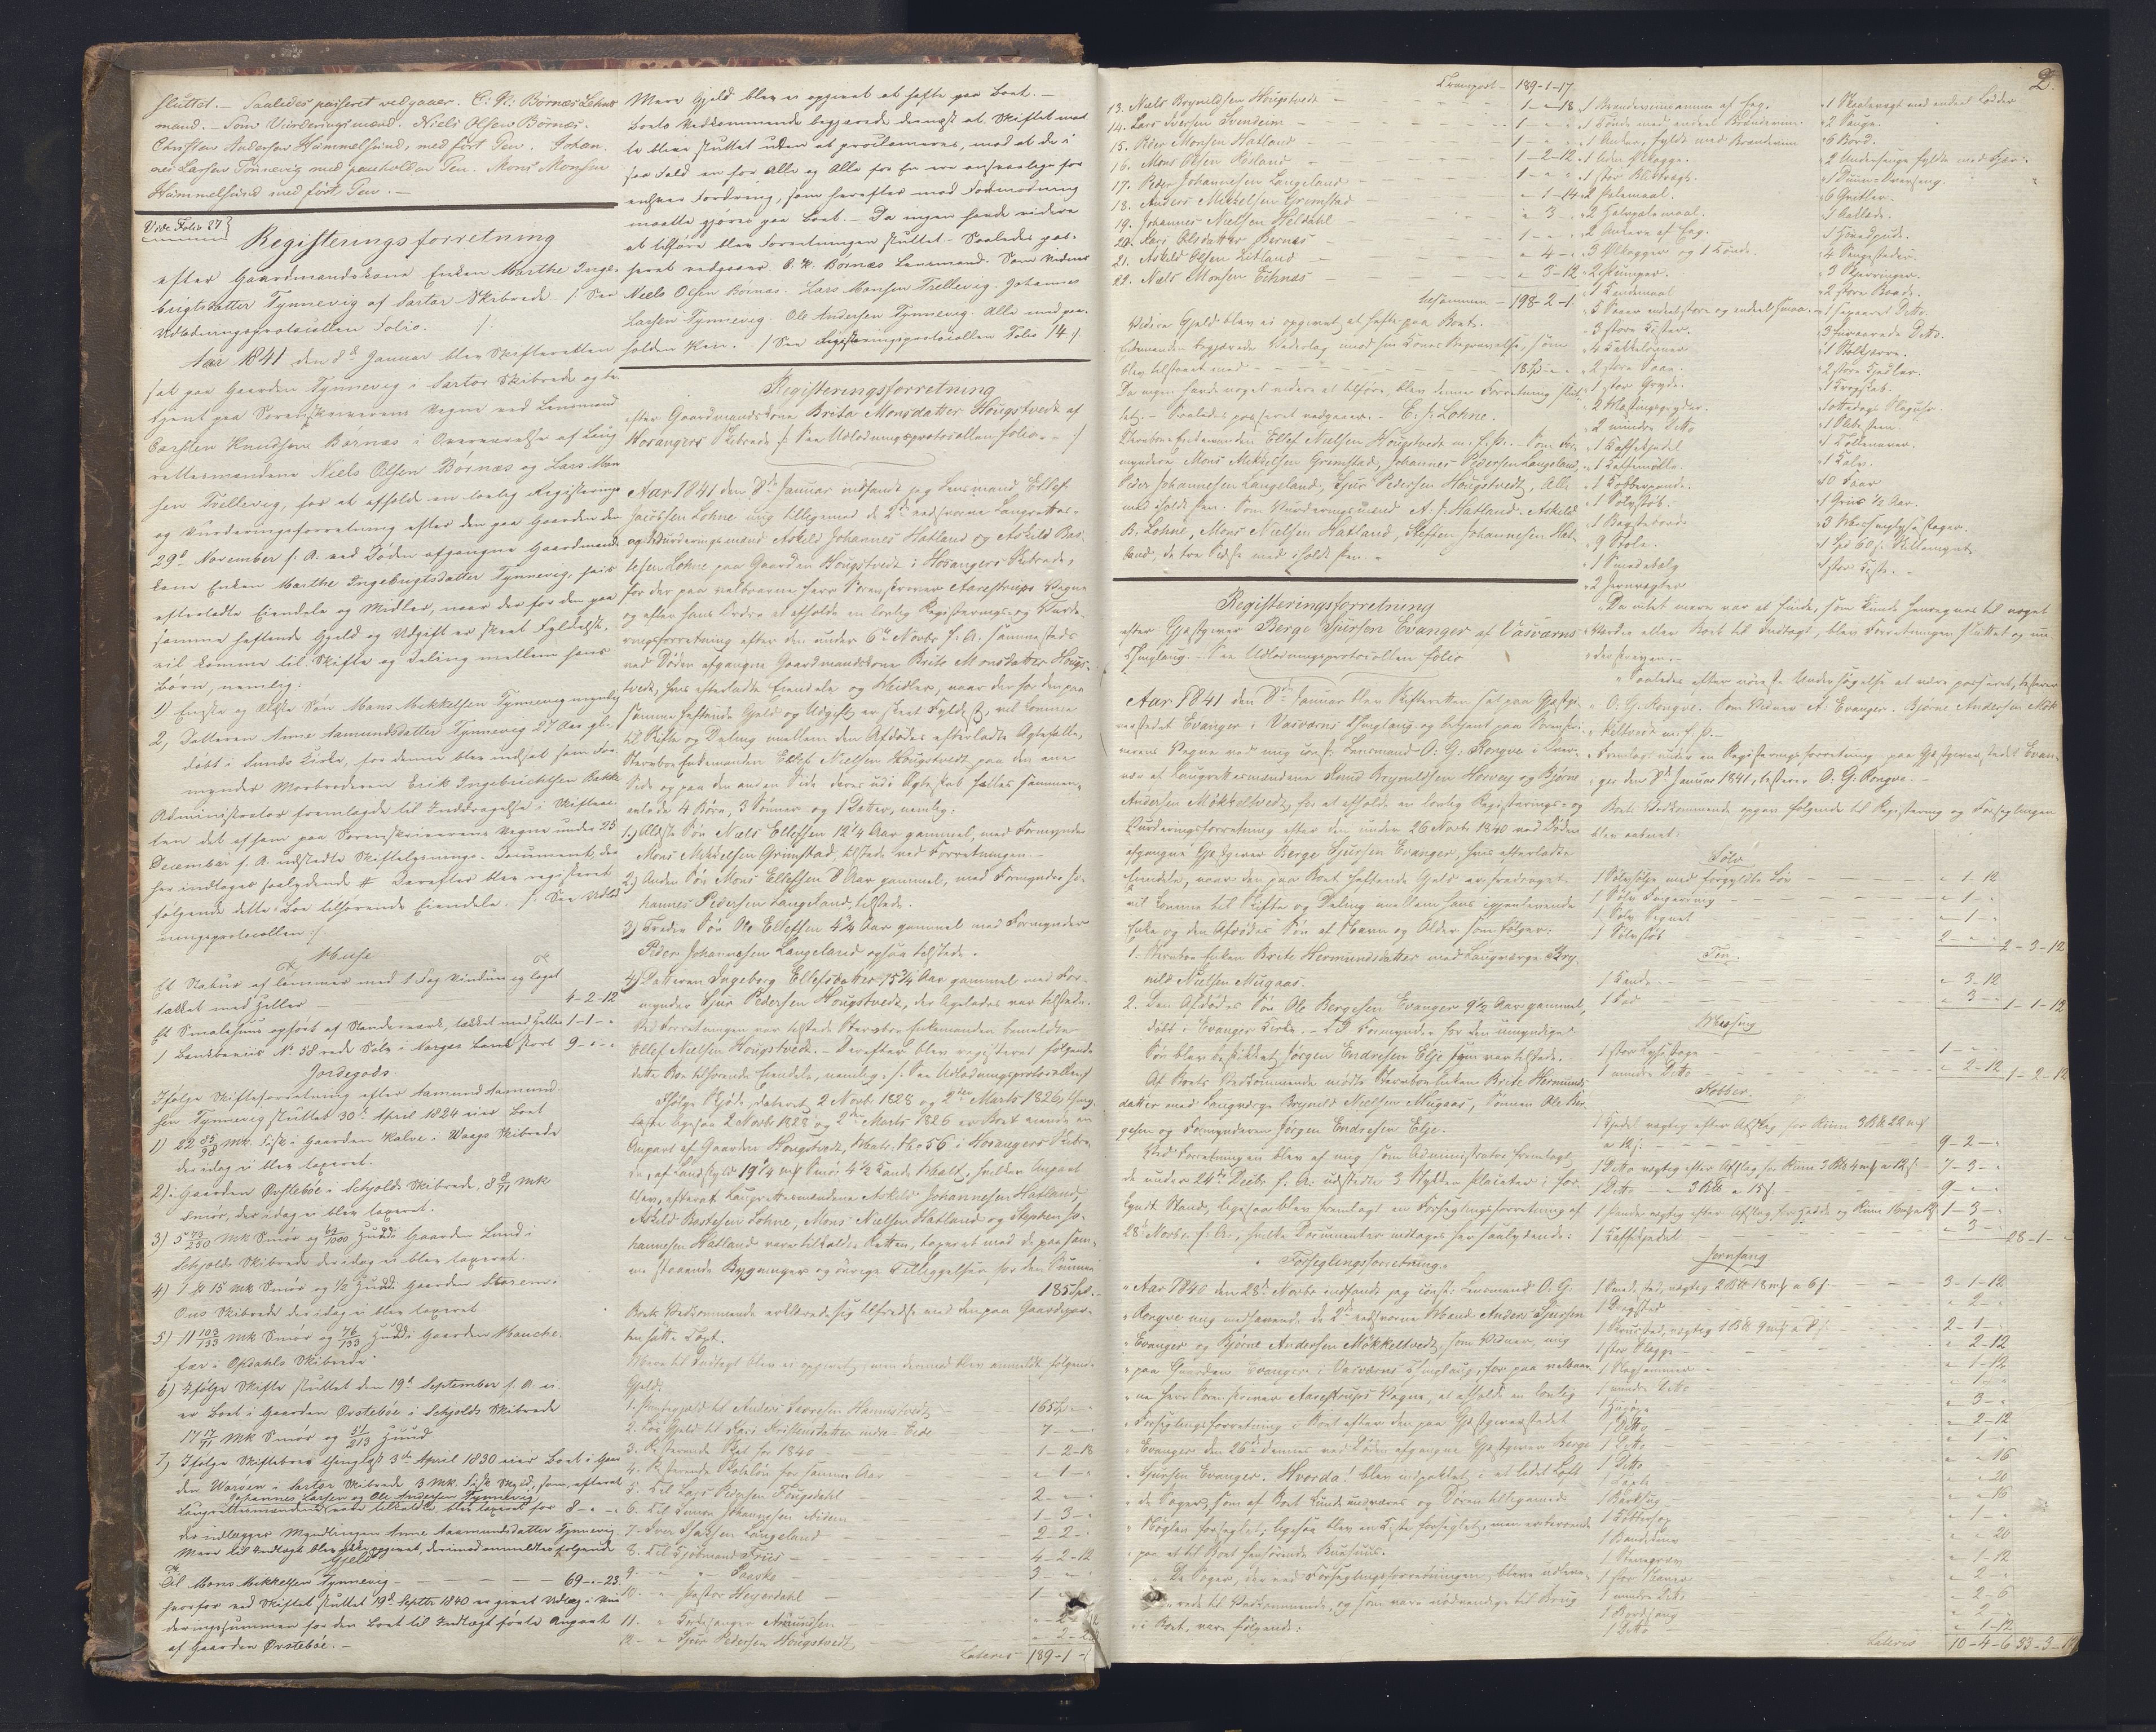 sluttet. — Saaledes passeret vedgaaer. C: K: Børnæs Lehns
mand. — Som Vurderingsmænd. Niels Olsen Børnæs.
Christen Andersen Hummelsund, med ført Pen. Johan-
nes Larsen Tønnevig med paaholden Pen. Mons Monsen
Hummelsund med ført Pen. —
Vide Folio 27
Registeringsforretning
efter Gaardmandskone Enken Marthe Inge-
brigtsdatter Tynnevig af Sartor Skibrede /: See
Udlodningsprotocollen Folio. :/
Aar 1841 den 8de Januar blev Skifteretten
sat paa Gaarden Tynnevig i Sartor Skibrede og be-
tjent paa Sorenskriverens Vegne ved Lensmand
Carsten Knudsen Børnæs i Overværelse af Laug-
rettesmændene Niels Olsen Børnæs og Lars Mon-
sen Trellevig, for at afholde en lovlig Registerings
og Vurderingsforretning efter den paa Gaarden den
29de November f. A. ved Døden afgangne Gaardmands
kone Enken Marthe Ingebrigtsdatter Tynnevig, hvis
efterladte Eiendele og Midler, naar der for den paa
samme heftende Gjeld og Udgift er skeet Fyldest,
vil komme til Skifte og Deling mellem hans
Børn, nemlig:
1) Eneste og ældste Søn Mons Mekkelsen Tynnevig myndig
2, Datteren Anne Aamundsdatter Tynnevig 27 Aar gl.
døbt i Sunds Kirke, for denne blev indsat som For-
mynder Morbroderen Erik Ingebrichtsen Bakke
Administrator fremlagde til Inddragelse i Skifteret-
ten det af ham paa Sorenskriverens Vegne under 23
December f. A. udstedte Skiftelysnings-Document, der
her indtages saalydende # Derefter blev registeret
følgende dette Boe tilhørende Eiendele. /: See Udlod
ningsprotocollen :/
Huse
Et Stabur af tømmer med 1 Fag Vindue og laget
tækket med Heller — 4-2-12
Et Smalehuus opført af Standerværk, tækket med Heller 1-1-"
1 Bankbeviis No 58 rede Sølv i Norges Bank stort 9-"-"
Jordegods
Ifølge Skifteforretning efter Aamund Aamund-
sen Tynnevig sluttet 30te April 1824 eier Boet
1) 22 85/98 Mk. Fisk i Gaarden Kalve i Waags Skibrede
der idag ei blev taxeret.
2) i Gaarden Øvstebøe i Schjolds Skibrede, 8 8/71 Mk
Smør, der idag ei blev taxeret.
3) 5 73/250 Mk Smør og 63/1000 Huud i Gaarden Lund i
Schjolds Skibrede der idag ei blev taxeret.
4) 1 # 15 Mk Smør og 1/2 Huud i Gaarden Storem i
Ous Skibrede der idag ei blev taxeret
5) 11 103/133 Mk Smør og 76/133 Hud i Gaarden Hauche-
fær i Opdahls Skibrede
6) Ifølge Skifte sluttet den 19de September f. A. ei-
er Boet i Gaarden Øvstebøe i Schjolds Skibrede
17 17/71 Mk Smør og 51/213 Huud
7) Ifølge Skiftebrev thinglæst 3die April 1830 eier Boet i Gaar
den Worven i Sartor Skibrede 3 Mk. Fisk Skyld, som, efterat
Johannes Larsen og Ole Andersen Tynnevig
Laugrettesmændene vare tilkaldte, blev taxeret for 8-"-"
der indlægger Myndlingen Anne Aamundsdatter Tynnevig
Mere til Indtægt blev ikke opgivet, derimod anmeldtes følgende
Gjeld
Til Mons Mekkelsen Tynnevig — 69-"-23
herfor ved Skiftet sluttet 19de Septbr 1840 er givet Udlæg i Vur-
deringssummen for den Boet til Indtægt førte Anpart
af Gaarden Øvstebøe. —
Mere Gjeld blev ei opgivet at hefte paa Boet. —
Boets Vedkommende begjærede dernæst at Skiftet maat
te blive sluttet uden at proclameres, mod at de i
saa Fald en for Alle og Alle for En ere ansvarlige for
enhver Fordring, som herefter med Formodning
maatte gjøres paa Boet. — Da ingen havde videre
at tilføre blev Forretningen sluttet. Saaledes pas-
seret vedgaaer. C. K. Børnæs Lensmand. Som Vidner
Niels Olsen Børnæs. Lars Monsen Trellevig. Johannes
Larsen Tynnevig. Ole Andersen Tynnevig. Alle med paa-
holden Pen. /: See Registeringsprotocollen Folio 14 :/
Registeringsforretning
efter Gaardmandskone Brita Monsdatter Hougstvedt af
Hosangers Skibrede /: See Udlodningsprotocollen folio. :/
Aar 1841 den 8de Januar indfandt jeg Lensmand Ellef
Jacobsen Lohne mig tilligemed de 2de eedsvorne Laugrettes-
og Vurderingsmænd Askeld Johannes Hatland og Askild Baa-
tesen Lohne paa Gaarden Hougstvedt i Hosangers Skibrede,
for der paa velbaarne Herr Sorenskriver Aarestrups Vegne
og efter hans Ordre at afholde en lovlig Registerings- og Vurde-
ringsforretning efter den under 6te Novbr f. A. sammesteds
ved Døden afgangne Gaardmandskone Brite Monsdatter Hougs-
tvedt, hvis efterladte Eiendele og Midler, naar der for den paa
samme heftende Gjeld og Udgift er skeet Fyldest, vil komme
til Skifte og Deling mellem den Afdødes efterladte Ægtefælle,
Stervboe Enkemanden Ellef Nielsen Hougstvedt paa den ene
Side og paa den anden Side deres udi Ægteskab fælles sammen-
avlede 4 Børn, 3 Sønner og 1 Datter, nemlig:
1.) Ældste Søn Niels Ellefsen 12 1/4 Aar gammel, med Formynder
Mons Mikkelsen Grimstad, tilstede ved Forretningen —
2.) Anden Søn Mons Ellefsen 8 Aar gammel, med Formynder Jo-
hannes Pedersen Langeland, tilstede.
3) Tredie Søn Ole Ellefsen 4 3/4 Aar gammel med Formynder
Peder Johannesen Langeland ogsaa tilstede.
4) Datteren Ingeborg Ellefsdatter 15 3/4 Aar gammel med For-
mynder Sjur Pedersen Hougstvedt, der ligeledes var tilstede.
Ved Forretningen var tilstede Stervboe Enkemanden bemeldte
Ellef Nielsen Hougstvedt. — Derefter blev registeret følgende
dette Boe tilhørende Eiendele, nemlig: /: See Udlodningsprotocollen :/
Ifølge Skjøde, dateret 2 Novbr 1828 og 2den Marts 1826, thing-
læste ligesaa 2 Novbr 1828 og 2den Marts 1826 er Boet eiende en
Anpart af Gaarden Hougstvedt, Matr. No 56 i Hosangers Skibre-
de, af Landskyld 19 1/4 mk Smør 4 1/2 Kande Malt, hvilken Anpart
blev, efterat Laugrettesmændene Askild Johannesen Hatland,
Askild Baatesen Lohne, Mons Nielsen Hatland og Stephen Jo-
hannesen Hatland vare tilkaldte Retten, taxeret med de paa sam-
me staaende Bygninger og øvrige Tilliggelser for den Summa
185 Spd. —
Boets Vedkommende erklærede sig tilfredse med den paa Gaardepar-
ten satte Taxt.
Mere til Indtægt blev ei opgivet, men dermod blev anmeldt følgende
Gjeld:
1. Pantegjæld til Anders Larsen Hannistvedt 165 Spd. " "
2. Løs Gjeld til Kari Kristensdatter indre Eide 7-"-"
3. Resterende Skat for 1840 — 1-2-18
4. Resterende Skoleløn for samme Aar "-1-"
5. Til Lars Pedersen Fougsdahl 2-"-"
6. Til Simon Johannesen Aadsen 1-3-"
7. Iver Sjursen Langeland — 2-2-"
8. Til Kjøbmand Fries — 4-2-12
9. " " Gaaske — 3-"-"
10. " Pastor Heyerdahl — 1-"-"
11. " Kirkesanger Amundsen "-2-12
12. " Sjur Pedersen Hougstvedt "-2-
Lateris 189-1-17
2.
Transport — 189-1-17
13. Niels Brynildsen Hougstvedt 1-"-18
14. Lars Iversen Svendeim — 1-"-"
15. Peder Monsen Hatland 1-"-"
16. Mons Olsen Kidland 1-2-12
17. Peder Johannesen Langeland 1-"-"
18. Anders Mikkelsen Grimstad "-1-14
19. Johannes Nielsen Heldahl "-3-"
20. Kari Olsdatter Bernæs 1-"-"
21. Askild Olsen Litland "-4-"
22. Niels Monsen Eiknæs "-3-12
tilsammen — 198-2-1
Videre Gjeld blev ei opgivet at hefte paa Boet.
Enkemanden begjærede Vederlag mod sin Kones Begravelse, som
blev tilstaaet med — 18 Spd " "
Da ingen havde noget videre at tilføre, blev denne Forretning slut-
tet. — Saaledes passeret vedgaaer. — E. J. Lohne.
Stervboe Enkemanden Ellef Nielsen Hougstvedt m. f. P. Som For-
myndere Mons Mikkelsen Grimstad, Johannes Pedersen Langeland,
Peder Johannesen Langeland, Sjur Pedersen Hougstvedt, Alle
med iholdt Pen. Som Vurderingsmænd A. J. Hatland. Askild
B. Lohne, Mons Nielsen Hatland, Steffen Johannesen Hat-
land, de tre Sidste med iholdt Pen. —
Registeringsforretning
efter Gjæstgiver Berge Sjursen Evanger af Vasværns
Thinglaug. — See Udlodningsprotocollen folio
Aar 1841 den 8de Januar blev Skifteretten sat paa Gjæstgi-
verstedet Evanger i Vasværns Thinglaug og betjent paa Sorenskri-
verens Vegne ved mig const. Lensmand O: G: Rongve i Over-
vær af Laugrettesmændene Knud Brynildsen Horvey og Bjørne
Andersen Møkkeltvedt, for at afholde en lovlig Registerings- og
Vurderingsforretning efter den under 26 Novbr 1840 ved Døden
afgangne Gjæstgiver Berge Sjursen Evanger, hvis efterladte
Eiendele, naar den paa Boet heftende Gjeld er fradraget
vil komme til Skifte og Deling mellem hans igjenlevende
Enke og den Afdødes Søn af Navn og Alder som følger:
1. Stervboe Enken Brite Hermundsdatter med Laugværge Bry-
nild Nielsen Mugaas.
2. Den Afdødes Søn Ole Bergesen Evanger 9 1/2 Aar gammel,
døbt i Evanger Kirke. — Til Formynder for den umyndige
Søn blev beskikket Jørgen Endresen Elje som var tilstede.
Af Boets Vedkommende mødte Stervboe Enken Brite Hermunds-
datter med Laugværge Brynild Nielsen Mugaas, Sønnen Ole Ber-
gesen og Formynderen Jørgen Endresen Elje.
Ved Forretningen blev af mig som Administrator fremlagt
de under 24de Decbr f. A. udstedte 3 Stykker Placater i for-
kyndt Stand, ligesaa blev fremlagt en Forseglingsforretning af
28de Novbr. f. A., hvilke Documenter indtages her saalydende:
Forseglingsforretning.
"Aar 1840 den 28de Novbr indfandt jeg const: Lensmand O. G.
"Rongve mig medhavende de 2de eedsvorne Mænd Anders Sjursen
"Evanger og Bjørne Andersen Møkkeltvedt, som Vidner, mig
"paa Gaarden Evanger i Vasværns Thinglaug, for paa velbaar-
"ne Herr Sorenskriver Aarestrups Vegne, at afholde en lovlig
"Forseglingsforretning i Boet efter den paa Gjæstgiverstedet
"Evanger den 26de dennes ved Døden afgangne Gjæstgiver Berge
"Sjursen Evanger. Hvorda! blev indpakket i et lidet Loft
"de Sager, som af Boet kunde undværes og Døren tilligemed
"Nøglen forseglet; ligesaa blev en Kiste forseglet, men
"paa et til Boet henhørende
"De Sager, der ved Forseglingsforretningen bleve udleve-
rede til Vedkommende, og som vare nødvendige til Brug
i Boet, vare følgende:
"1 Brændeviinspanne af Eg.
"1 Tønde med endeel Brændeviin.
"1 Anker, fyldt med Brændeviin
"1 tom Ølkagge.
"1 stor Blikdunk.
"2 Pelemaal.
"2 Halvpelemaal.
"2 Ankere af Eg.
"3 Ølkagger og 1 Tønde.
"2 Strumper.
"1 Kandemaal
"5 Spann endeel store og endeel Smaa.
"3 store Kister.
"4 Tallerkener
"2 store Faae.
"1 stor Gryde.
"2 Mellemgryder.
"2 mindre Ditto
"1 Kaffekjedel
"1 Kaffemølle.
"1 Kobberpande.
"1 Sølvstøb.
"1 Bagstebord
"9 Stole.
"1 Smedebælg
"2 Jernvægter
"1 Skaalevægt med endeel Lodder
"2 Senge.
"6 Bord.
"2 Undersenge fyldte med Fjær.
"1 Duun-Oversseng.
"6 Qvitler.
"1 Aaklæde.
"1 Hovedpude.
"4 Sengesteder.
"3 Kjerringer.
"2 store Baade.
"1 sexaaret Ditto.
"3 firaarede Ditto.
"1 Stolkjerre.
"2 store Fjedler.
"1 Kropskab.
"1 Slibesteen.
"1 Kalv.
"10 Faar
"1 Griis 1/2 Aar.
"3 Messinglysestager.
"1 Spd 60 s: Skillemynt
"1 stor Kiste. —
"Da intet mere var at finde, som kunde henregnes til noget
"Værdie eller Boet til Indtægt, blev Forretningen sluttet og un-
"derskreven. —
"Saaledes efter nøieste Undersøgelse at være passeret, testerer
"O: G: Rongve. Som Vidner A: Evanger. Bjørne Andersen Møk
"keltvedt m. f. P. —
"Fremlagt under en Registeringsforretning paa Gjæstgiverstedet Evan-
"ger den 8de Januar 1841, testerer O. G. Rongve. —
Boets Vedkommende opgav følgende til Registering og Forseglingen
blev aabnet:
Sølv
1 Sølvskee med forgyldte Løv — "-1-12
1 Sølv Fingerring "-1-"
1 Sølv Signet "-1-"
1 Sølvstøb 2-"-" 2-3-12
Tin.
1 Kande — "-3-12
1 Fad — "-3-" 1-1-12
Messing
1 stor Lysestage 1-"-"
1 mindre Ditto "-2-12 1-2-12
Kobber.
1 Kjedel vægtig efter Afslag for Riim 3 B# 22 mk
a 12 s: — 9-2-"
1 Ditto vægtig efter Afslag for Riim 3 B# 4 mk a 12 s: 7-3-"
1 Ditto — " 3 B# a 15 s 9-"-"
1 Pande vægtig efter Afslag for Hadde og Riim 16 mk a 12 s 1-3-"
1 Kaffekjedel "-3-" 28-1-"
Jernfang
1 Smedested, vægtig 2 B# 18 mk a 6 s: 3-1-12
"-2-"
2-1-"
1 stor Slægge "-2-12
"-1-12
1 mindre Ditto "-1-"
"-3-"
1 Ditto "-2-12
1 Ditto "-1-"
1 Ditto "-"-16
"-"-20
"-"-16
"-1-"
"-"-20
"-1-12
1 stor Naver "-2-"
1 mindre Ditto "-2-6
"-2-"
1 Ditto "-1-12
Lateris 10-4-6 33-3-12